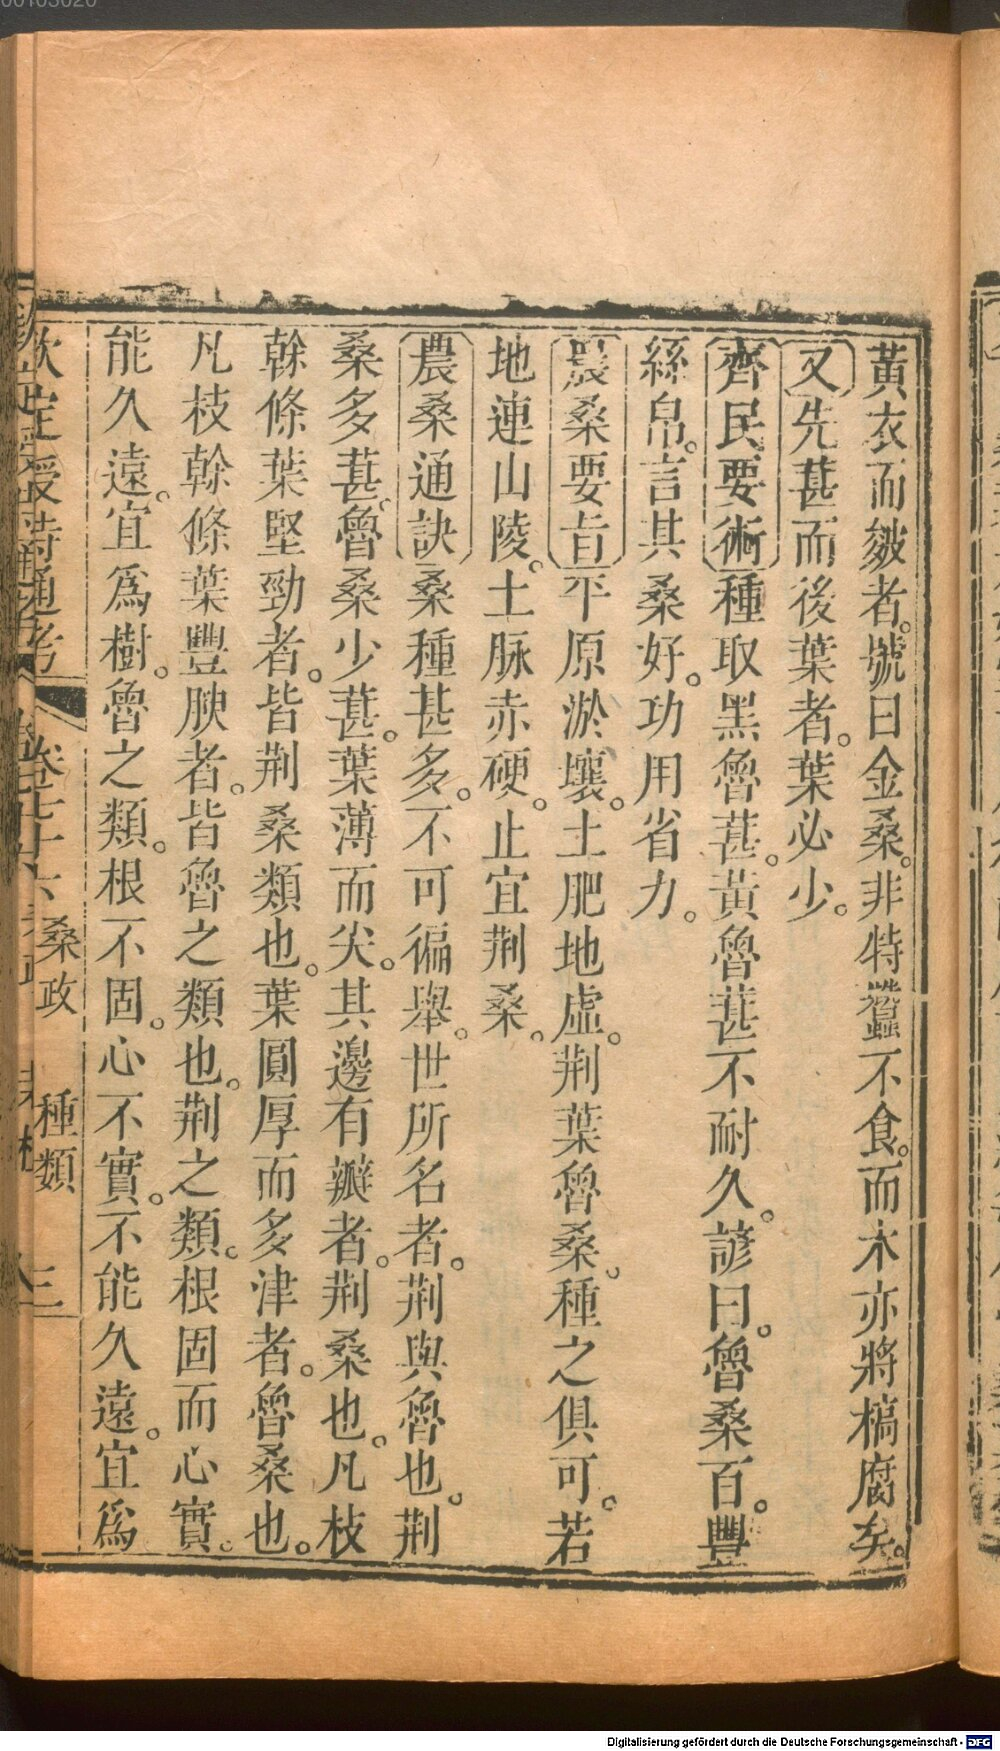 黃衣而皴者。號曰金桑。非特蠶不食。而木亦將槁腐矣。
又先葚而後葉者。葉必少。
齊民要術種取黑魯葚。黃魯葚不耐久。諺曰。魯桑百。豐
絲帛。言其桑好。功用省力。
農桑要旨平原淤壤。土肥地虛。荆葉魯桑。種之俱可。若
地連山陵。土脉赤硬。止宜荆桑。
農桑通訣桑種甚多。不可徧舉。世所名者。荆與魯也。荆
桑多葚。魯桑少葚。葉薄而尖。其邊有瓣者。荆桑也。凡枝
幹條葉堅勁者。皆荆桑類也。葉圓厚而多津者。魯桑也。
凡枝幹條葉豐腴者。皆魯之類也。荆之類。根固而心實。
能久遠。宜爲樹。魯之類。根不固。心不實。不能久遠。宜爲
欽定授時通考 卷七十六 桑政 種類 三
Digitalisierung gefördert durch die Deutsche Forschungsgemeinschaft - DFG